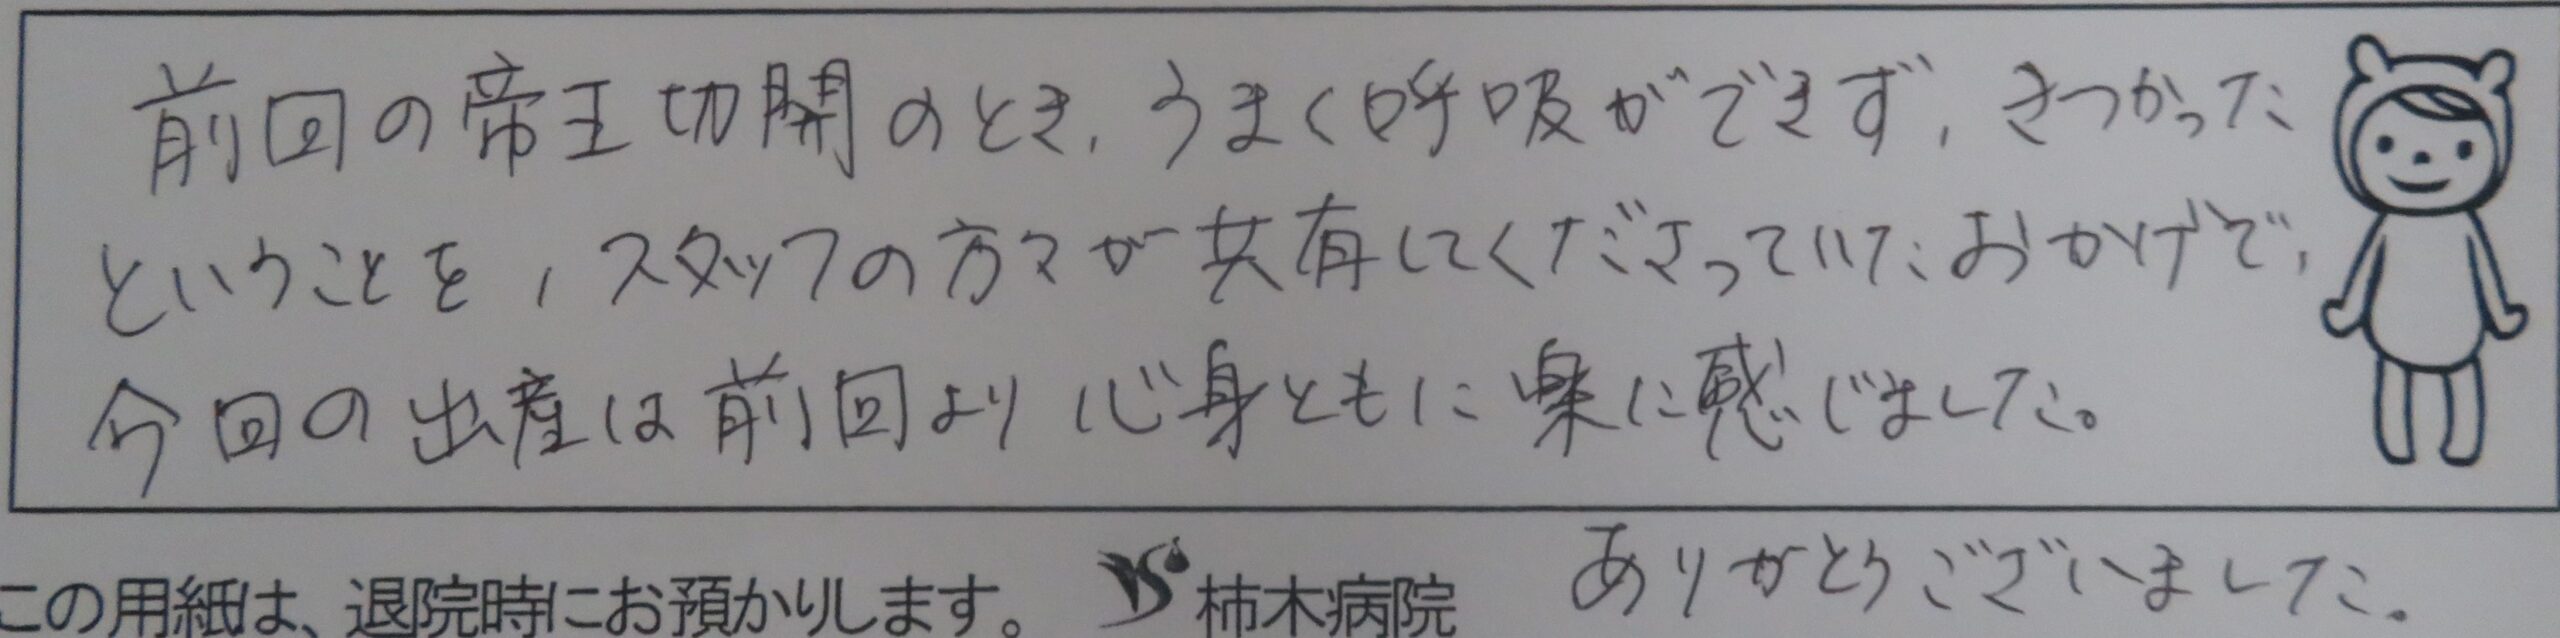 前回の帝王切開のとき、うまく呼吸ができず、きつかった
ということを、スタッフの方々が共有してくださっていたおかげで、
今回の出産は前回より心身ともに楽に感じました。
ありがとうございました。
この用紙は、退院時にお預かりします。 柿木病院